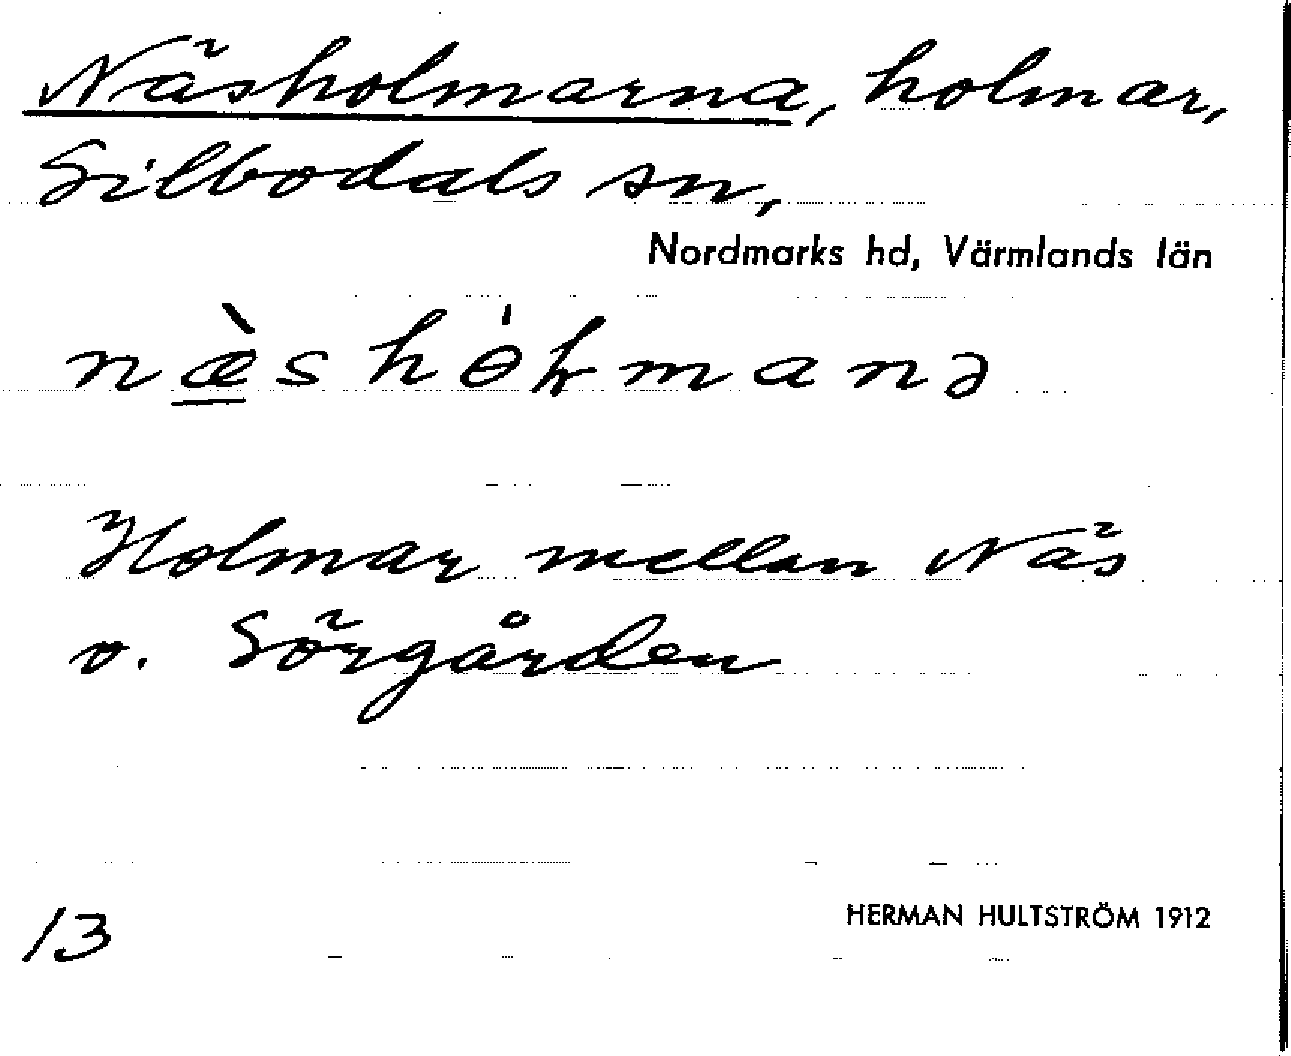 Näsholmarna, holmar,
Silbodals sn,
Nordmarks hd, Värmlands län
Holmar mellan Näs
o. Sörgården
13
HERMAN HULTSTRÖM 1912